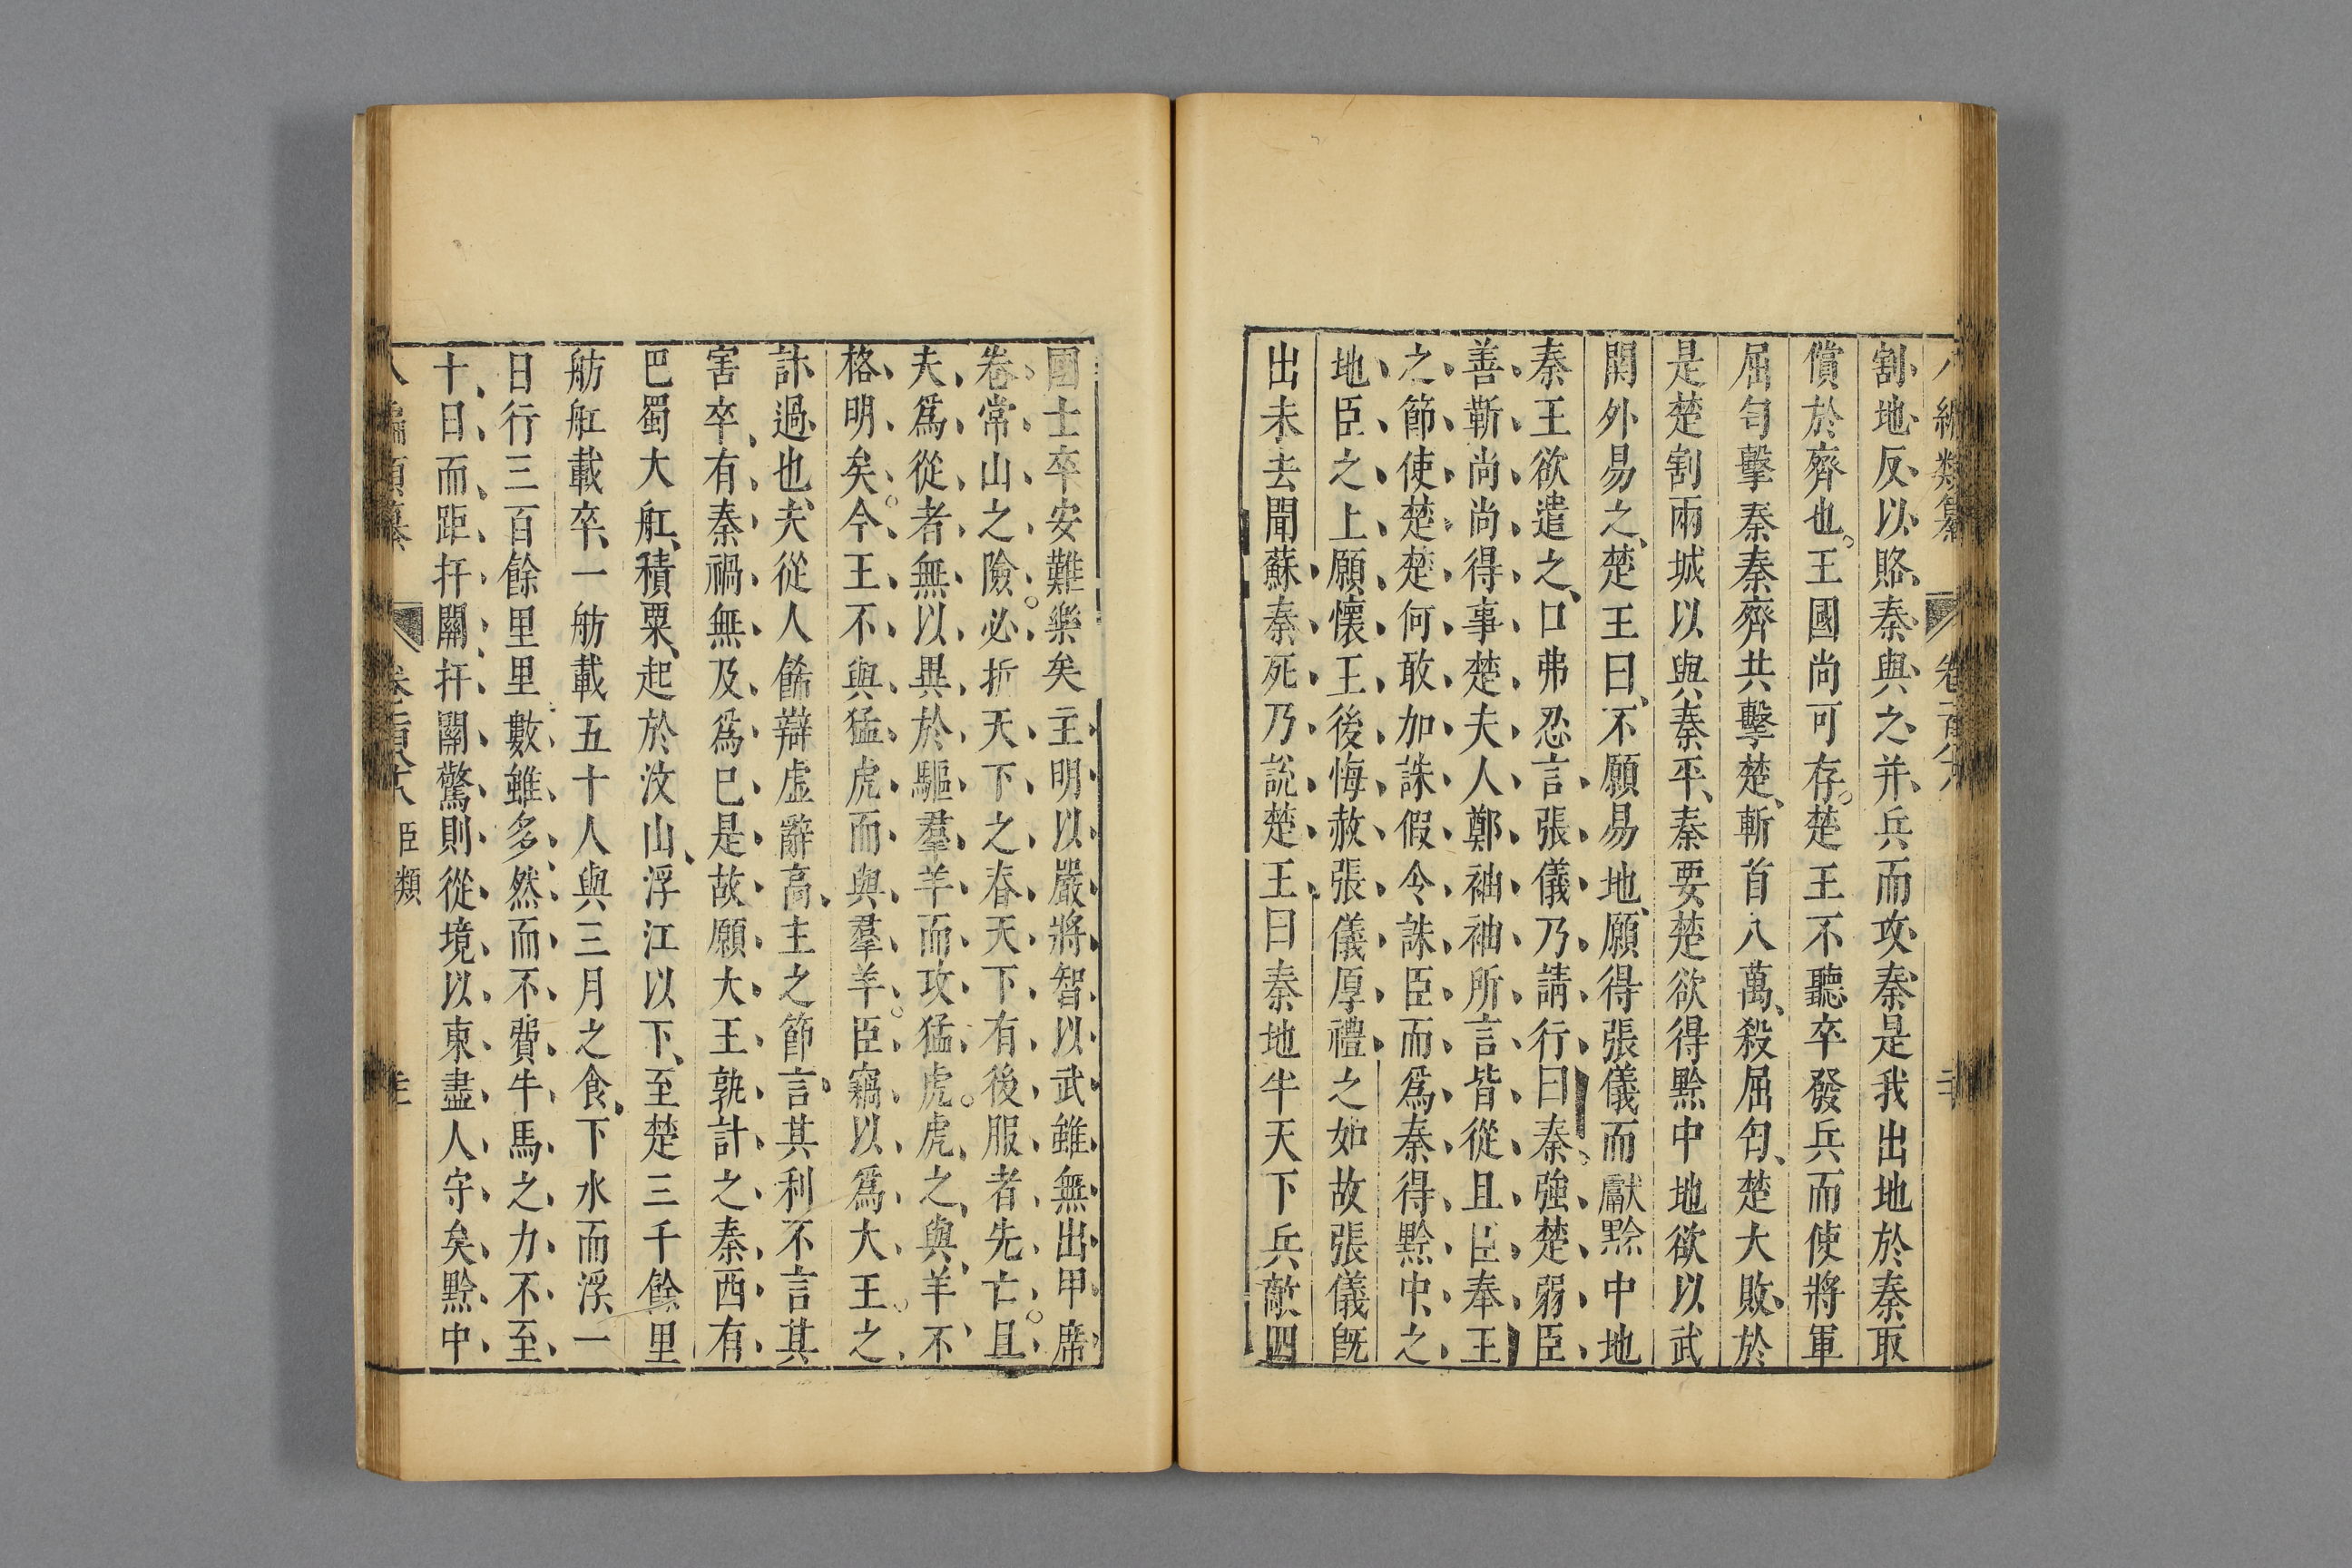 八編類纂 卷一百八六 二十
割地反以賂秦與之并兵而攻秦是我出地於秦取
償於齊也王國尚可存楚王不聽卒發兵而使將軍
屈匄擊秦秦齊共擊楚斬首八萬殺屈匄楚大敗於
是楚割兩城以與秦平秦要楚欲得黔中地欲以武
關外易之楚王曰不願易地願得張儀而獻黔中地
秦王欲遣之口弗忍言張儀乃請行曰秦強楚弱臣
善靳尚尚得事楚夫人鄭袖袖所言皆從且臣奉王
之節使楚楚何敢加誅假令誅臣而爲秦得黔中之
地臣之上願懷王後悔赦張儀厚禮之如故張儀既
出未去聞蘇秦死乃説楚王曰秦地半天下兵敵四
國士卒安難樂矣主明以嚴將智以武雖無出甲席
卷常山之險必折天下之春天下有後服者先亡且
夫爲從者無以異於驅羣羊而攻猛虎虎之與羊不
格明矣今王不與猛虎而與羣羊臣竊以爲大王之
計過也夫從人餙辯虛辭高主之節言其利不言其
害卒有秦禍無及爲已是故願大王孰計之秦西有
巴蜀大舡積粟起於汶山浮江以下至楚三千餘里
舫舡載卒一舫載五十人與三月之食下水而浮一
日行三百餘里里數雖多然而不費牛馬之力不至
十日而距扞關扞關驚則從境以東盡人守矣黔中
臣類